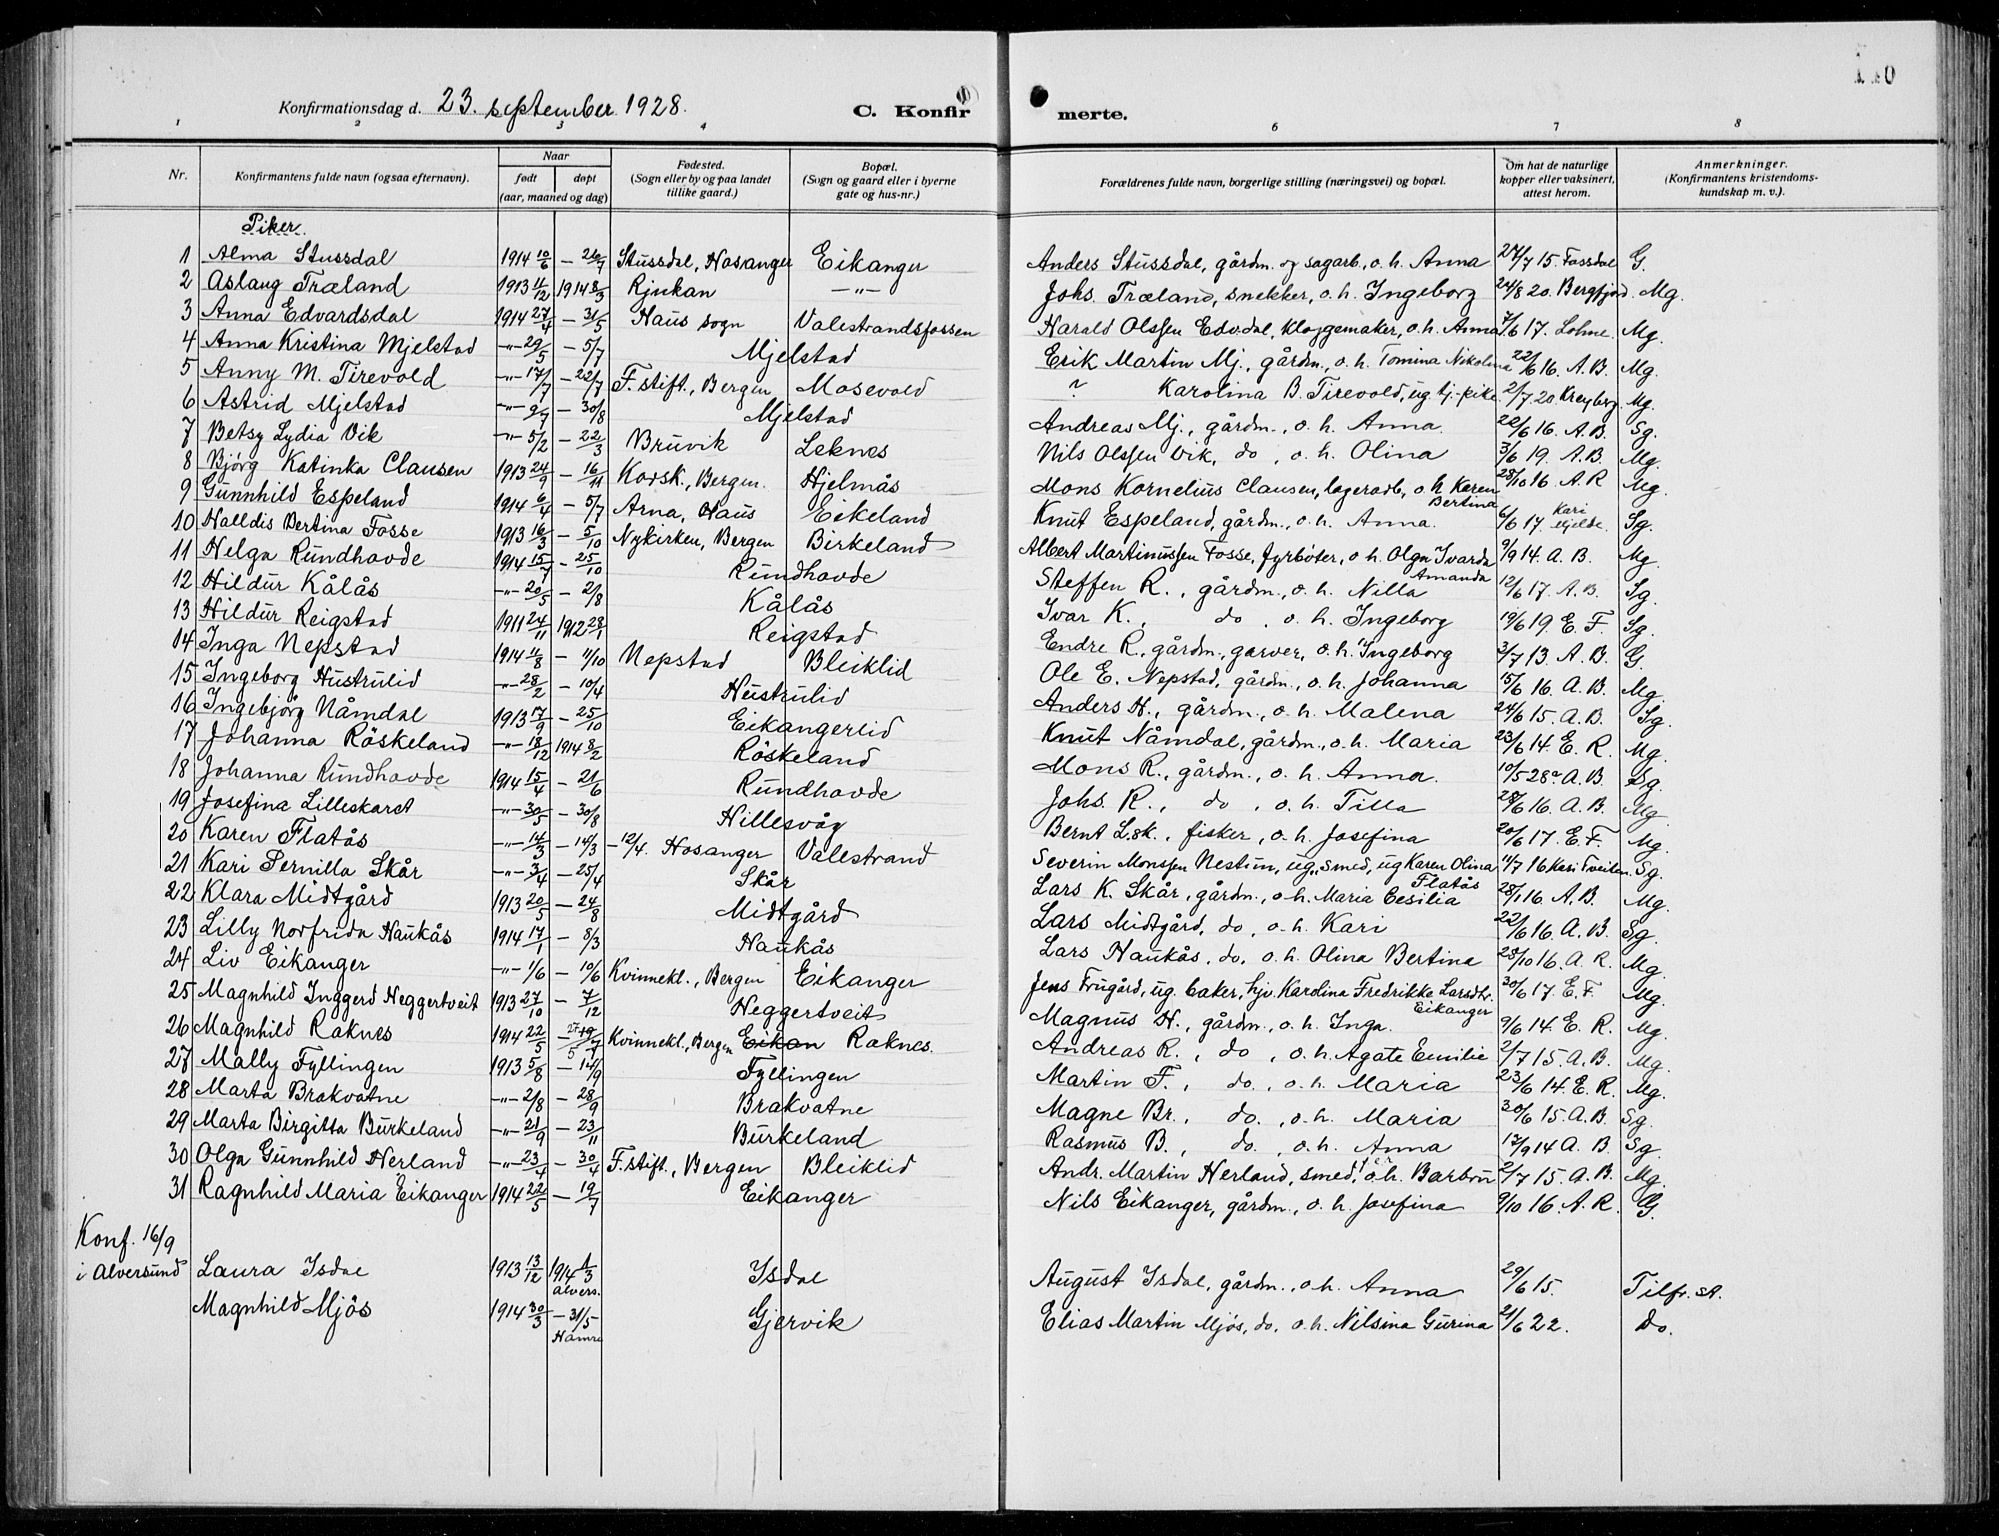 Konfirmationsdag d. 23. september 1928.
C. Konfir merte.
1 2 3 4 6 7 8
Nr. Konfirmantens fulde navn (ogsaa efternavn). Naar født døpt (aar, maaned og dag) Fødested. (Sogn eller by og paa landet tillike gaard.) Bopæl. (Sogn og gaard eller i byerne gate og hus-nr.) Forældrenes fulde navn, borgerlige stilling (næringsvei) og bopæl. Om hat de naturlige kopper eller vaksinert, attest herom. Anmerkninger. (Konfirmantens kristendomskundskap m. v.).
Piker.
1 Alma Stussdal 1914 10/6 – 26/7 Stussdal, Hosanger Eikanger Anders Stussdal, gårdm. og sagarb., o. h. Anna 27/7 15. Fossdal G.
2 Aslaug Træland 1913 11/12 1914 8/3 Rjukan –"– Johs. Træland, snekker, o. h. Ingeborg 24/8 20. Bergfjord. Mg.
3 Anna Edvardsdal 1914 27/4 – 31/5 Haus sogn Valestrandsfossen Harald Olssen Edv.dal, kloggemaker, o. h. Anna 7/6 17. Lohne. Mg.
4 Anna Kristina Mjelstad –"– 29/5 – 5/7 Mjelstad Erik Martin Mj., gårdm., o. h. Tomina Nikolina 22/6 16. A. B. Mg.
5 Anny M. Tirevold –"– 17/7 – 22/7 F. stift., Bergen Mosevold ? Karolina B. Tirevold, ug tj.-pike. 2/7 20. Kreyberg. Mg.
6 Astrid Mjelstad –"– 9/7 – 30/8 Mjelstad Andreas Mj., gårdm., o. h. Anna. 22/6 16. A. B. Sg.
7 Betsy Lydia Vik –"– 5/2 – 22/3 Bruvik Leknes Nils Olssen Vik, do, o. h. Olina 3/6 19. A. B. Mg.
8 Bjørg Katinka Clausen 1913 24/9 – 16/11 Korsk., Bergen. Hjelmås Mons Kornelius Clausen, lagerarb., o. h. Karen Bertina 28/10 16. A. R Mg.
9 Gunnhild Espeland 1914 6/4 – 5/7 Arna, Haus Eikeland Knut Espeland, gårdm., o. h. Anna. 6/6 17. Kari Hjelde. Sg.
10 Halldis Bertina Fosse 1913 16/3 – 5/10 Nykirken, Bergen Birkeland Albert Martinussen Fosse, fyrbøter, o. h. Olga Ivarda Amanda 9/9 14. A. B. Mg.
11 Helga Rundhovde 1914 15/7 – 25/10 Rundhovde Steffen R., gårdm., o. h. Nilla 12/6 17. A. B. Sg.
12 Hildur Kålås –"– 20/5 – 2/8 Kålås Ivar K., do, o. h. Ingeborg 19/6 19. E. F. Sg.
13 Hildur Reigstad 1911 24/11 1912 28/1 Reigstad Endre R., gårdm., garver, o. h. Ingeborg 2/7 13. A. B. G.
14 Inga Nepstad 1914 11/8 – 11/10 Nepstad Bleiklid Ole E. Nepstad, gårdm., o. h. Johanna 15/6 16. A. B. Mg.
15 Ingeborg Hustrulid –"– 28/2 – 10/4 Hustrulid Anders H., gårdm., o. h. Malena 24/6 15. A. B. Sg.
16 Ingebjørg Nåmdal 1913 17/9 – 25/10 Eikangerlid Knut Nåmdal, gårdm., o. h. Maria 23/6 14. E. R. Mg.
17 Johanna Röskeland –"– 18/12 1914 8/2 Röskeland Mons R., gårdm., o. h. Anna. 10/5 28. A. B. Sg.
18 Johanna Rundhovde 1914 15/4 – 21/6 Rundhovde Johs. R., do, o. h. Tilla 28/6 16. A. B. Mg.
19 Josefina Lilleskaret –"– 30/5 – 30/8 Hillesvåg Bernt L.sk., fisker, o. h. Josefina 20/6 17. E. F. Mg.
20 Karen Flatås –"– 14/3 – 14/3 – 12/4. Hosanger Valestrand Severin Monssen Nestun, ug., smed, ug Karen Olina Flatås 11/7 16 Kari Tveiten. Sg.
21 Kari Pernilla Skår –"– 3/4 – 25/4 Skår Lars K. Skår, gårdm., o. h. Maria Cesilia 28/1 16. A. B. Mg.
22 Klara Midtgård 1913 20/5 – 24/8 Midtgård Lars Midtgård, do, o. h. Kari 22/6 16. A. B. Sg.
23 Lilly Norfrida Haukås 1914 17/1 – 8/3 Haukås Lars Haukås, do, o. h. Olina Bertina 28/10 16. A. R. Mg.
24 Liv Eikanger –"– 1/6 – 10/6 Kvinnekl., Bergen Eikanger Jens Frugård, ug. baker, hjv. Karolina Fredrikke Larsdtr. Eikanger 30/6 17. E. F. Mg.
25 Magnhild Inggerd Heggertveit 1913 27/10 – 7/12 Heggertveit Magnus H., gårdm., o. h. Inga. 9/6 14. E. R. Mg.
26 Magnhild Raknes 1914 22/5 – 27/5 19/7 Kvinnekl., Bergen Eikan Raknes. Andreas R., do, o. h. Agate Emilie 2/7 15. A. B. Mg.
27 Mally Fyllingen 1913 5/8 – 14/9 Fyllingen Martin F., do., o. h. Maria 23/6 14. E. R. Mg.
28 Marta Brakvatne –"– 2/8 – 28/9 Brakvatne Magne Br., do., o. h. Maria 30/6 15. A. B. Sg.
29 Marta Birgitta Burkeland –"– 21/9 – 23/11 Burkeland Rasmus B., do, o. h. Anna 12/9 14 A. B. Sg.
30 Olga Gunnhild Herland –"– 23/4 – 30/4 F. stift., Bergen Bleiklid Andr. Martin Herland, smed, o. h. Barbru 2/7 15. A. B. Mg.
31 Ragnhild Maria Eikanger 1914 22/5 – 19/7 Eikanger Nils Eikanger, gårdm., o. h. Josefina 9/10 16. A. R. G.
Konf. 16/9
i Alversund Laura Isdal 1913 13/12 1914 1/3 Alvers. Isdal August Isdal, gårdm., o. h. Anna 29/6 15. Tilfr. st.
Magnhild Mjös 1914 30/3 – 31/5 Hamre Gjervik Elias Martin Mjøs, do, o. h. Nilsina Gurina 21/6 22. do.